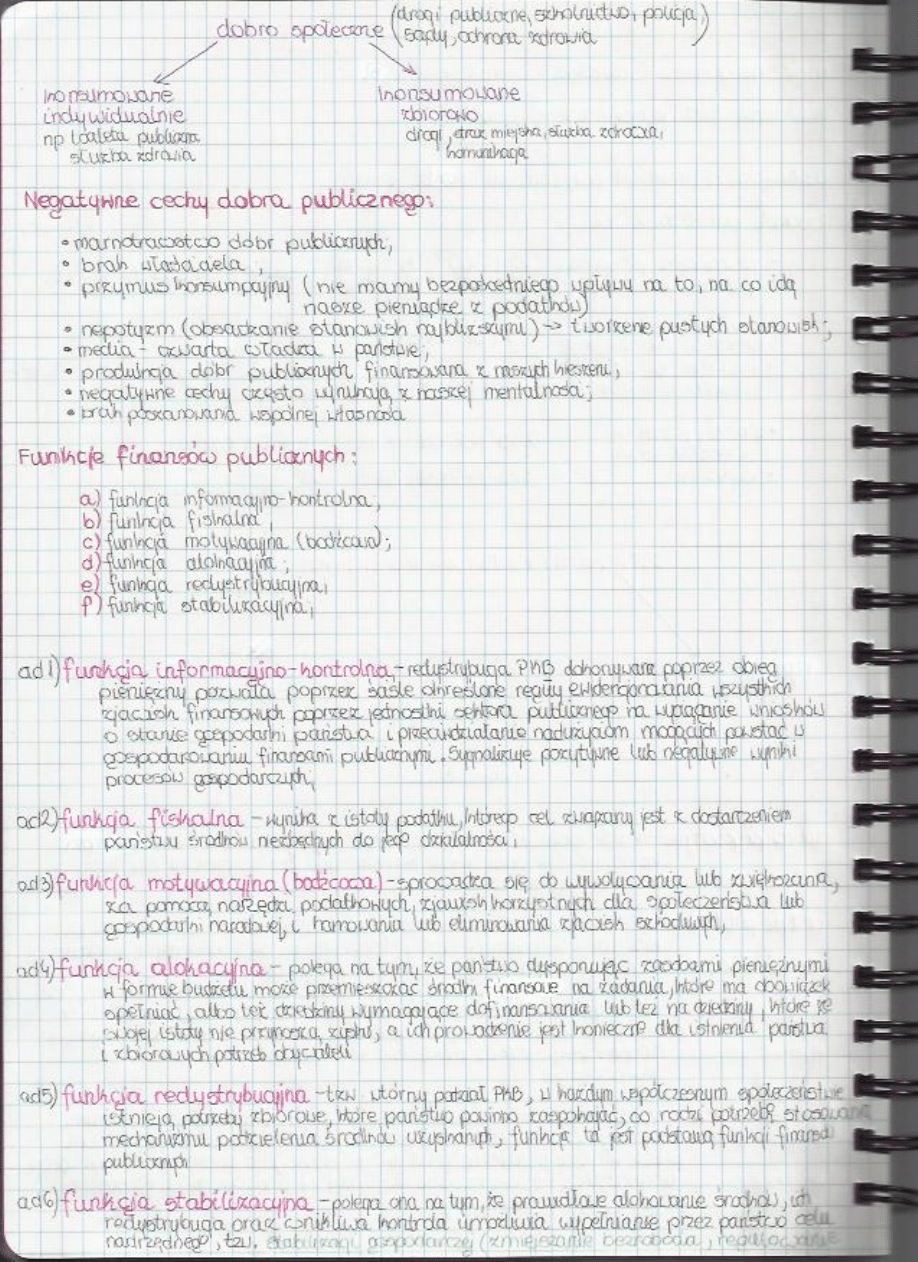 dobro społeczne (drogi publiczne, szkolnictwo, policja,)
(sądy, ochrona zdrowia
konsumowane
indywidualnie
np toaleta publiczna
służba zdrowia
konsumowane
zbiorowo
drogi, straż miejska, służba zdrowia,
komunikacja
Negatywne cechy dobra publicznego:
• marnotrawstwo dóbr publicznych,
• brak właściciela,
• przymus konsumpcyjny (nie mamy bezpośredniego wpływu na to, na co idą
nasze pieniądze z podatków)
• nepotyzm (obsadzanie stanowisk najbliższymi) → tworzenie pustych stanowisk;
• media - czwarta władza w państwie;
• produkcja dóbr publicznych finansowana z naszych kieszeni,
• negatywne cechy często wynikają z naszej mentalności;
• brak poszanowania wspólnej własności
Funkcje finansów publicznych:
a) funkcja informacyjno-kontrolna,
b) funkcja fiskalna,
c) funkcja motywacyjna (bodźcowa);
d) funkcja alokacyjna;
e) funkcja redystrybucyjna,
f) funkcja stabilizacyjna,
ad1) funkcja informacyjno-kontrolna,-redystrybucja PKB dokonywana poprzez obieg
pieniężny pozwala poprzez ściśle określone reguły ewidencjonowania wszystkich
zjawisk finansowych poprzez jednostki sektora publicznego na wyciąganie wniosków
o stanie gospodarki państwa i przeciwdziałanie nadużyciom mogących powstać w
gospodarowaniu finansami publicznymi. Sygnalizuje pozytywne lub negatywne wyniki
procesów gospodarczych,
ad2) funkcja fiskalna - wynika z istoty podatku, którego cel związany jest z dostarczeniem
państwu środków niezbędnych do jego działalności,
ad3) funkcja motywacyjna (bodźcowa) - sprowadza się do wywoływania lub zwiększania,
za pomocą narzędzi podatkowych, zjawisk korzystnych dla społeczeństwa lub
gospodarki narodowej, i hamowania lub eliminowania zjawisk szkodliwych,
ad4) funkcja alokacyjna - polega na tym, że państwo dysponując zasobami pieniężnymi
w formie budżetu może przemieszczać środki finansowe na zadania, które ma obowiązek
spełniać, albo też dziedziny wymagające dofinansowania lub też na dziedziny, które ze
swojej istoty nie przynoszą zysku, a ich prowadzenie jest konieczne dla istnienia państwa
i zbiorowych potrzeb obywateli
ad5) funkcja redystrybucyjna - tzw wtórny podział PKB, w każdym współczesnym społeczeństwie
istnieją potrzeby zbiorowe, które państwo powinno zaspokajać, co rodzi potrzebę stosowania
mechanizmu podzielenia środków uzyskanych, funkcja ta jest podstawą funkcji finansów
publicznych
ad6) funkcja stabilizacyjna - polega ona na tym, że prawidłowe alokowanie środków, ich
redystrybucja oraz wnikliwa kontrola umożliwia wypełnianie przez państwo celu
nadrzędnego, tzw. stabilizacji gospodarczej (zmniejszanie bezrobocia, regulowanie